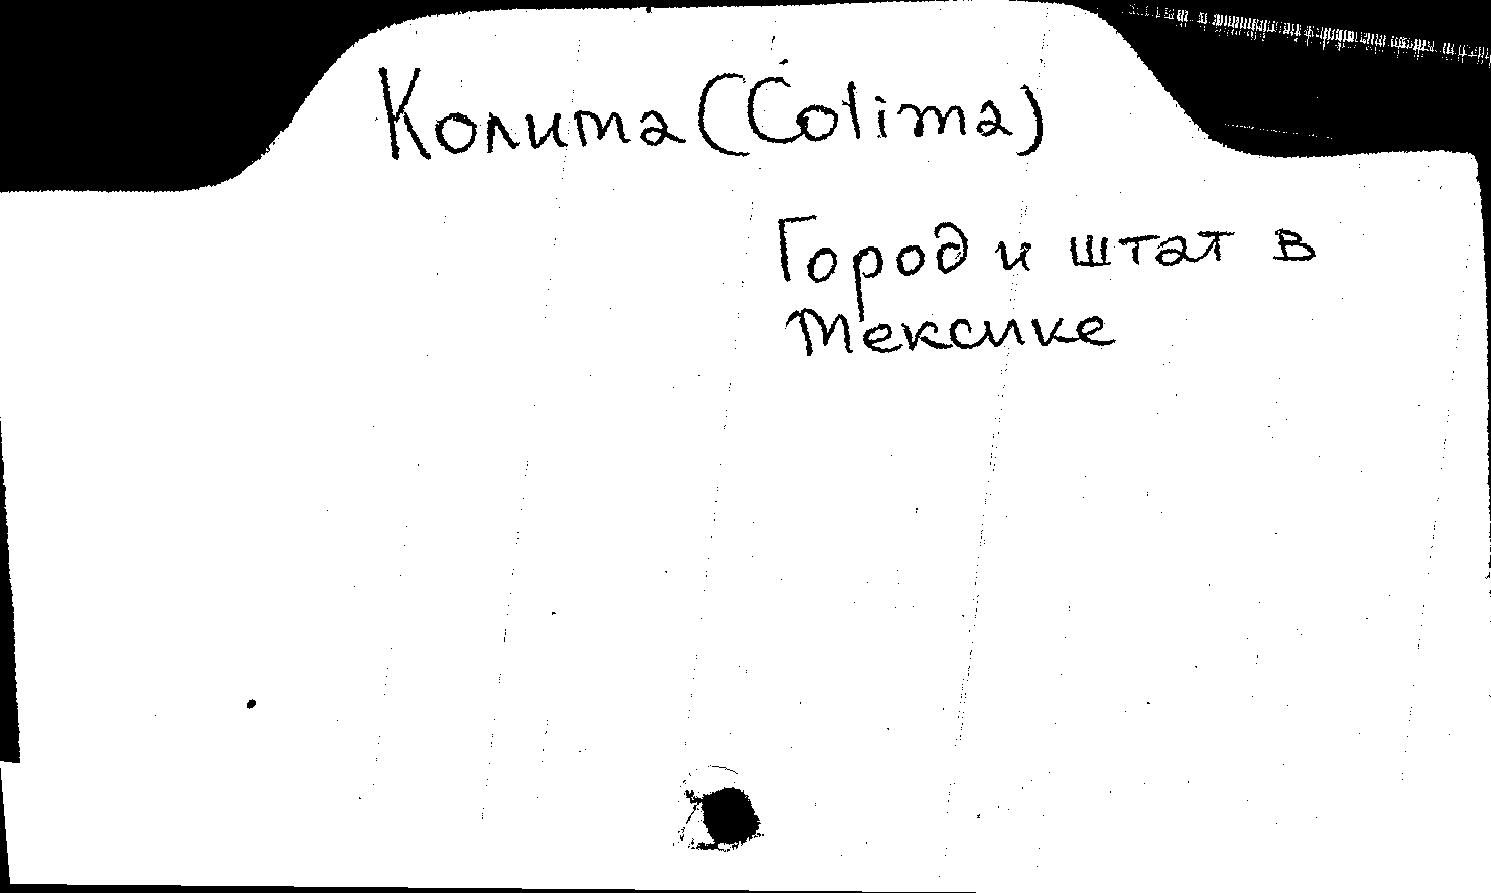 Колима (Colima)
Город и штат в
Мексике